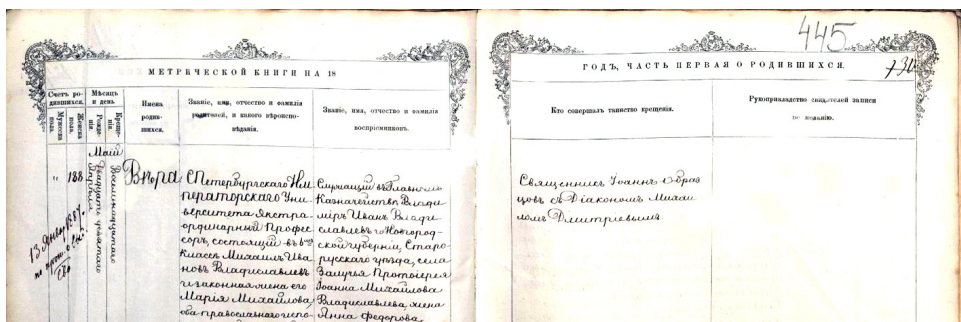 445
730
МЕТРИЧЕСКОЙ КНИГИ НА 18
ГОДЪ, ЧАСТЬ ПЕРВАЯ О РОДИВШИХСЯ.
Счетъ ро-
дившихся.
Мужеска
пола.
Женска
пола.
Мѣсяцъ
и день
Рожде-
нія.
Креще-
нія.
Имена
родив-
шихся.
Званіе, имя, отчество и фамилія
родителей, и какого вѣроиспо-
вѣданія.
Званіе, имя, отчество и фамилія
воспріемниковъ.
Кто совершалъ таинство крещенія.
Рукоприкладство свидѣтелей записи
по желанію.
"
188
Май
Двадцать девятаго
Апрѣля
Восемнадцатаго
Вѣра
СПетербургскаго Им
ператорскаго Уни-
верситета Экстра-
ординарный Профес-
соръ, состоящій въ
классѣ Михаилъ Ива
новъ Владиславлевъ
и законная жена его
Марія Михайлова,
оба православнаго испо-
Служащій въ Главномъ
Казначействѣ Влади-
міръ Иванъ Влади-
славлевъ и Новгород-
ской губерніи, Старо-
русскаго уѣзда, села
Залучья Протоіерея
Іоанна Михайлова
Владиславлева жена
Анна Федорова
Священникъ Іоаннъ Образ
цовъ съ Діакономъ Михаи
ломъ Дмитріевымъ.
13 Января 1887